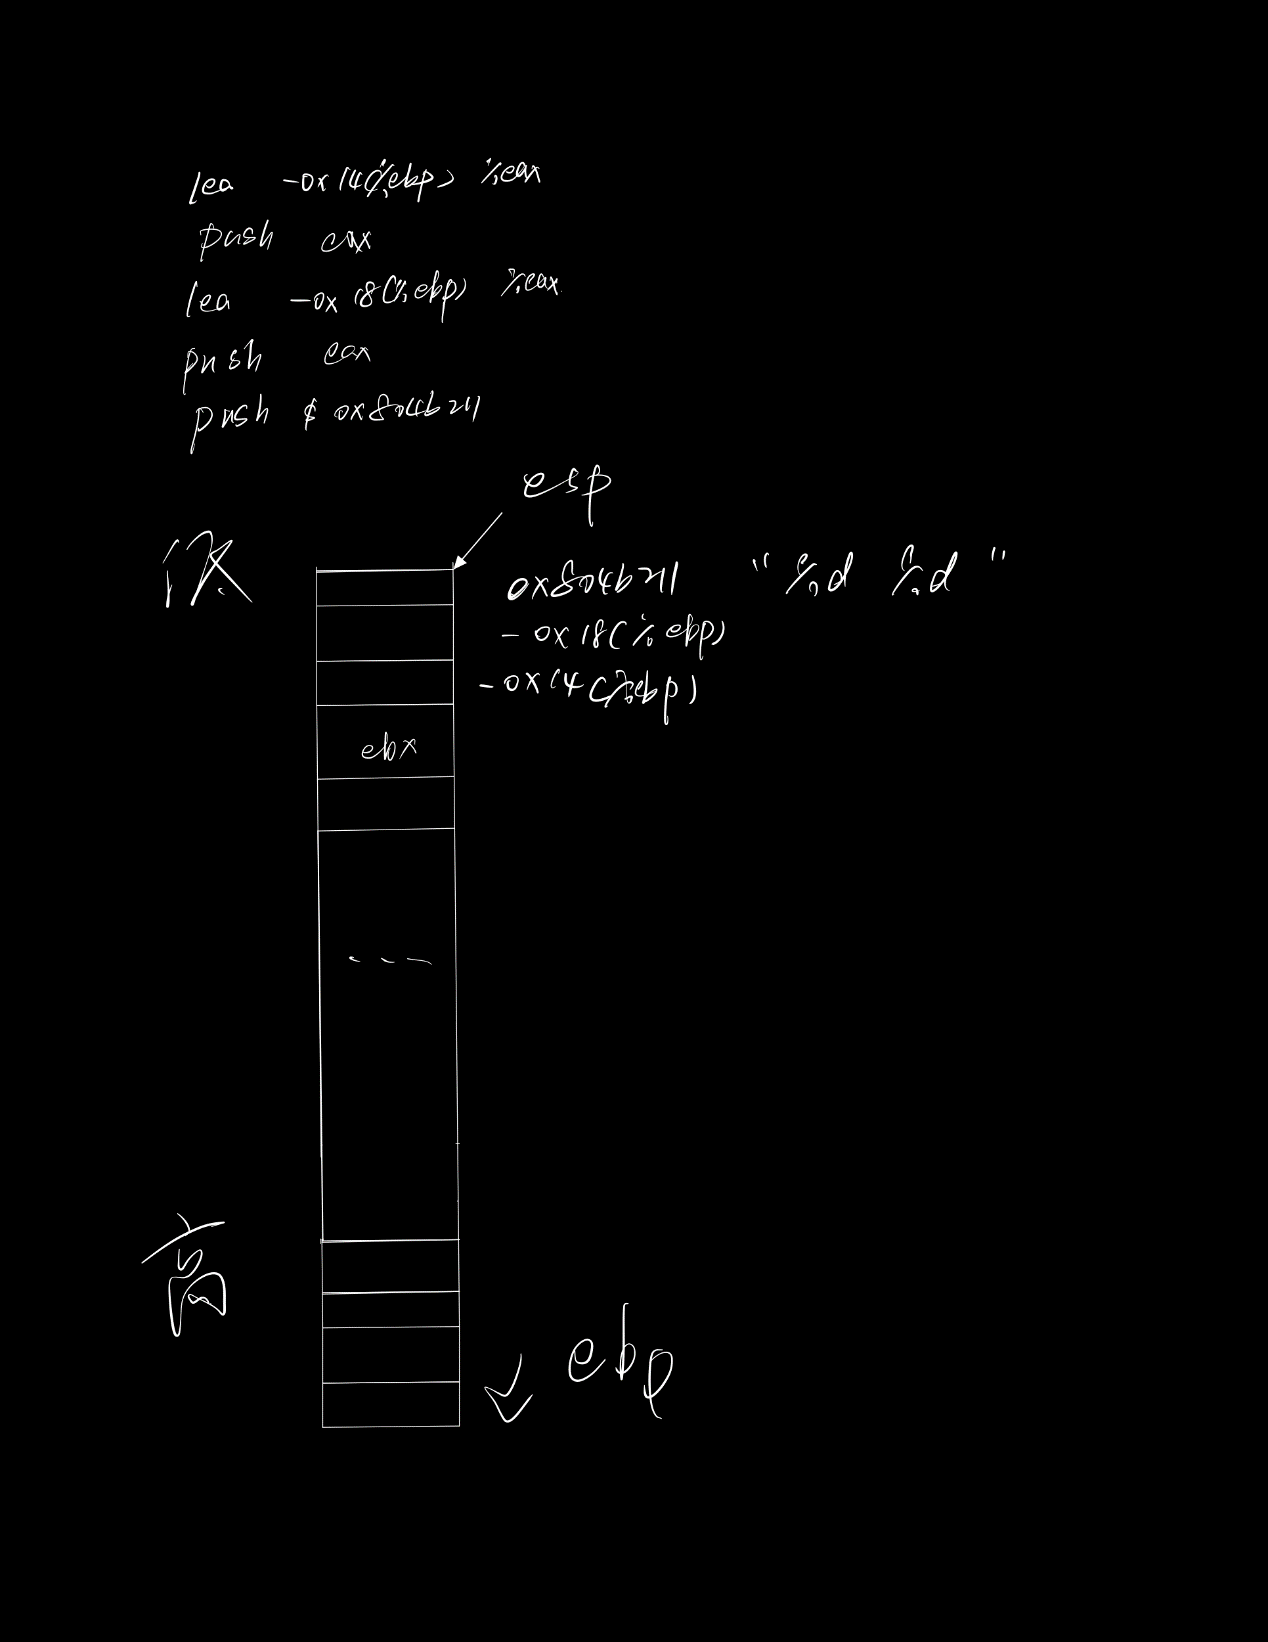 lea -0x14(%ebp) %eax
push eax
lea -0x18(%ebp) %eax
push eax
push $ 0x804b211
esp
低
0x804b211 "%d %d"
-0x18(%ebp)
-0x14(%ebp)
ebx
---
高
ebp